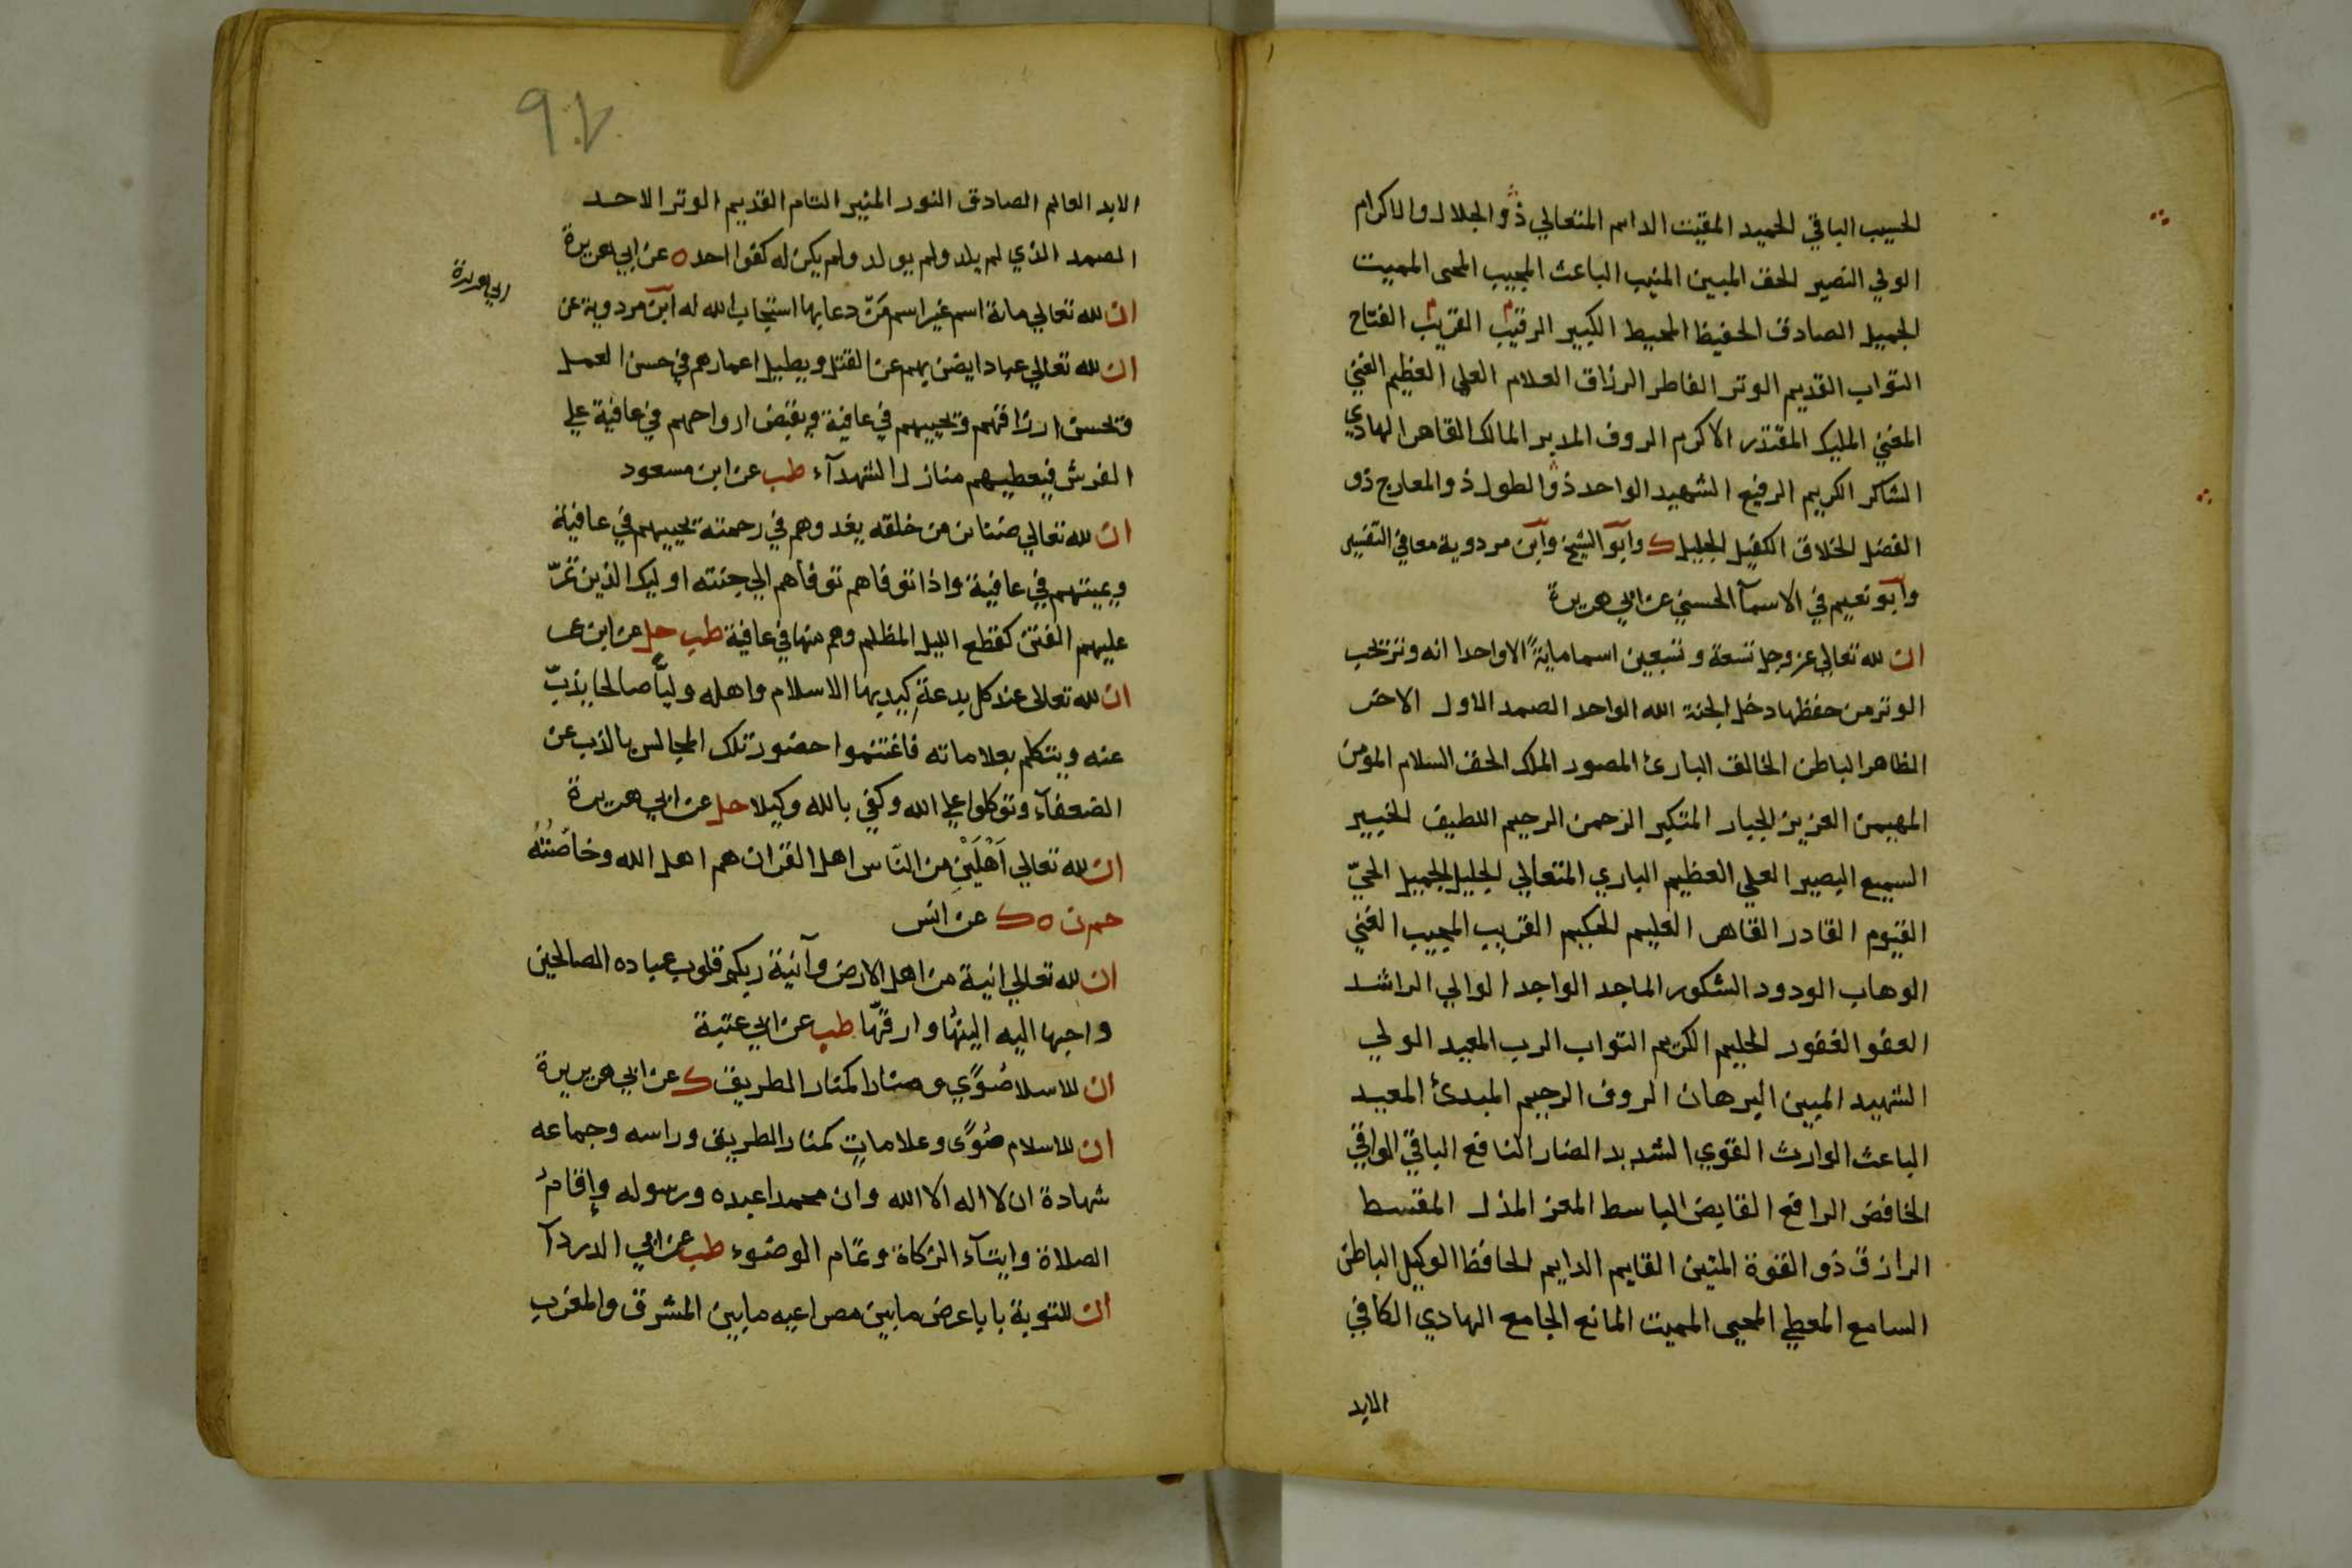 الحسيب الباقي الحميد المقيت الدايم المتعالي ذو الجلال والاكرام
الولي النصير الحق المبين المنيب الباعث المجيب المحى المميت
الجميل الصادق الحفيظ المحيط الكبير الرقيب القريب الفتاح
التواب القديم الوتر الفاطر الرزاق العلام العلى العظيم الغني
المغني المليك المقتدر الاكرم الروف المدبر المالك القاهر الهادي
الشاكر الكريم الرفيع الشهيد الواحد ذو الطول ذو المعارج ذو
الفضل الخلاق الكفيل الجليل ك وابو الشيخ وابن مردوية معا في التفسير
وابو نعيم في الاسمآ الحسني عن ابي هريرة
ان لله تعالي عز وجل تسعة وتسعين اسما ماية الا واحدا انه وتر يحب
الوتر من حفظها دخل الجنة الله الواحد الصمد الاول الاخر
الظاهر الباطن الخالق البارئ المصور الملك الحق السلام المؤمن
المهيمن العزيز الجبار المتكبر الرحمن الرحيم اللطيف الخبير
السميع البصير العلي العظيم الباري المتعالي الجليل الجميل الحيّ
القيوم القادر القاهر العليم الحكيم القريب المجيب الغني
الوهاب الودود الشكور الماجد الواجد الوالي الراشد
العفو الغفور الحليم الكريم التواب الرب المجيد الولي
الشهيد المبين البرهان الروف الرحيم المبدئ المعيد
الباعث الوارث القوي الشديد الضار النافع الباقي الواقي
الخافض الرافع القابض الباسط المعز المذل المقسط
الرازق ذو القوة المتين القايم الدايم الحافظ الوكيل الباطن
السامع المعطي المحيى المميت المانع الجامع الهادي الكافي
الابد
الابد العالم الصادق النور المنير التام القديم الوتر الاحد
الصمد الذي لم يلد ولم يولد ولم يكن له كفوا احد ه عن ابي هريرة
ان لله تعالي ماىة اسم غير اسم مَنّ دعا بها استجاب الله له ابن مردوية عن
ابي هريرة
ان لله تعالي عبادا يضن بهم عن القتل ويطيل اعمارهم في حسن العمل
ويحسن ارزاقهم ويحييهم في عافية ويقبض ارواحهم في عافية علي
الفرش فيعطيهم منازل الشهدآء طب عن ابن مسعود
ان لله تعالي ضنائن من خلقه يغدوهم في رحمته يحييهم في عافية
ويميتهم في عافية واذا توفاهم توفاهم الي جنته اوليك الذين تمرّ
عليهم الفتن كقطع الليل المظلم وهم منها في عافية طب حل عن ابن عمر
ان لله تعالى عند كل بدعةٍ كيد بها الاسلام واهله وليًّا صالحا يذبّ
عنه ويتكلم بعلاماته فاغتنموا حضور تلك المجالس بالذب عن
الضعفآء وتوكلوا علي الله وكفي بالله وكيلا حل عن ابي هريرة
ان لله تعالي اَهْلَيْنِ من النّاس اهل القران هم اهل الله وخاصّتُهُ
حم ن ه ك عن انس
ان لله تعالي انية من اهل الارض وآنية ربكم قلوب عباده الصالحين
واحبها اليه الينها وارقّها طب عن ابي عنبة
ان للاسلا صُوًي ومنارا كمنار الطريق ك عن ابي هريرة
ان للاسلام صُوًى وعلاماتٍ كمنار الطريق وراسه وجماعه
شهادة ان لا اله الا الله وان محمدا عبده ورسوله وإقامُ
الصلاة وايتآء الزكاة وتمام الوضوء طب عن ابي الدردآ
ان للتوبة بابا عرض مابين مصراعيه مابين المشرق والمغرب